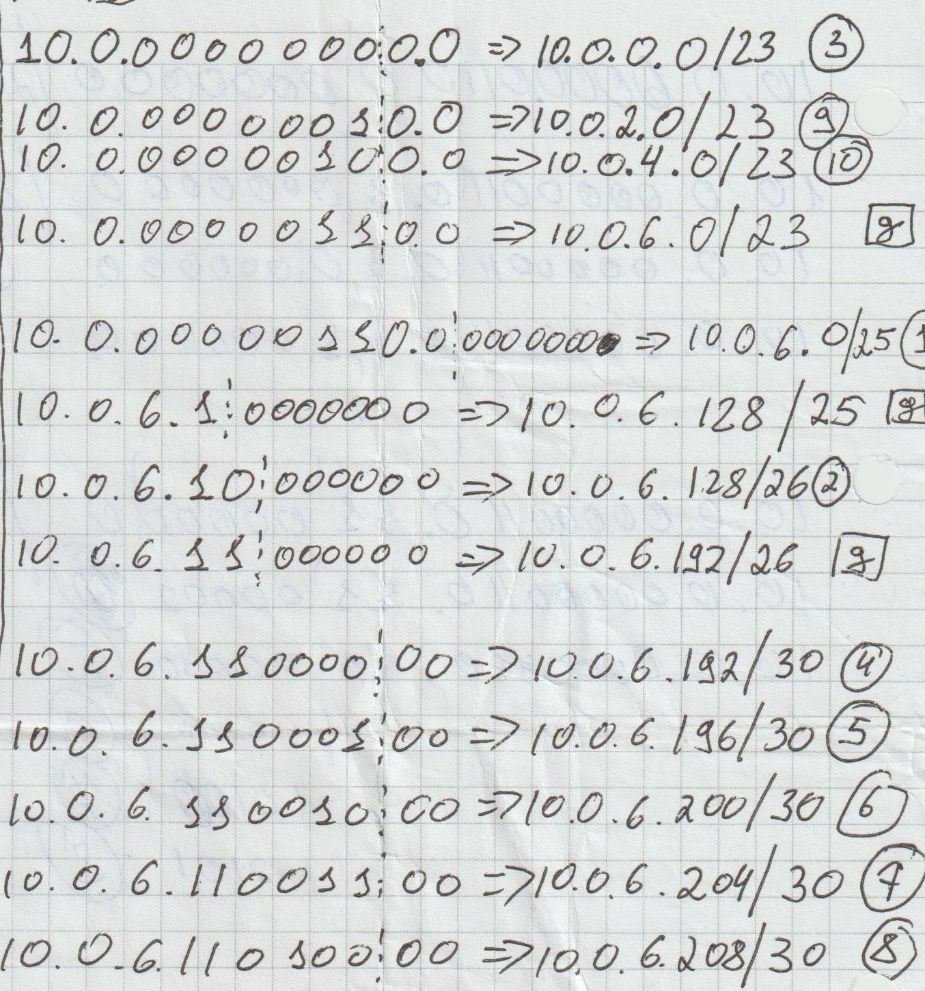 10.0.0000000:0.0 => 10.0.0.0/23 3
10. 0.0000001:0.0 => 10.0.2.0/23 9
10. 0.0000010:0.0 => 10.0.4.0/23 10
10. 0.0000011:0.0 => 10.0.6.0/23 g
10. 0.00000110.0:0000000 => 10.0.6.0/25 1
10.0.6.1:0000000 => 10.0.6.128/25 g
10.0.6.10:000000 => 10.0.6.128/26 2
10.0.6.11:000000 => 10.0.6.192/26 g
10.0.6.110000:00 => 10.0.6.192/30 4
10.0.6.110001:00 => 10.0.6.196/30 5
10.0.6.110010:00 => 10.0.6.200/30 6
10.0.6.110011:00 => 10.0.6.204/30 7
10.0.6.110100:00 => 10.0.6.208/30 8